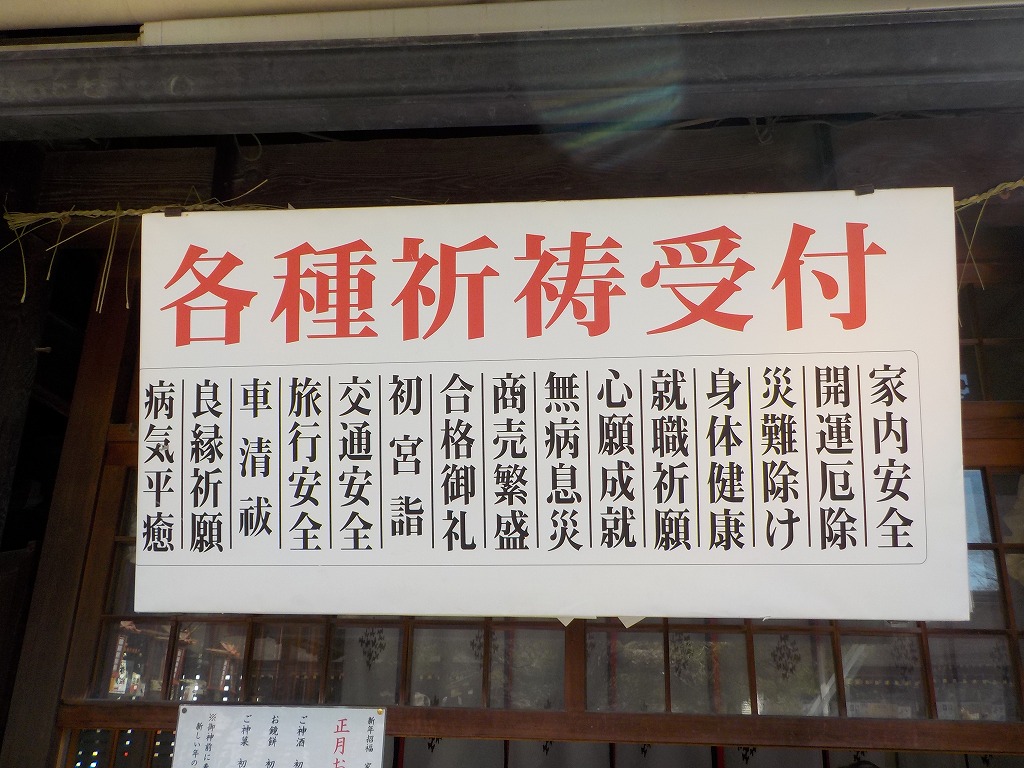 各種祈祷受付
家内安全
開運厄除
災難除け
身体健康
就職祈願
心願成就
無病息災
商売繁盛
合格御礼
初宮詣
交通安全
旅行安全
車清祓
良縁祈願
病気平癒
新年招福
正月お
ご神酒 初
お鏡餅 初
ご神菓 初
※御神前に
新しい年の